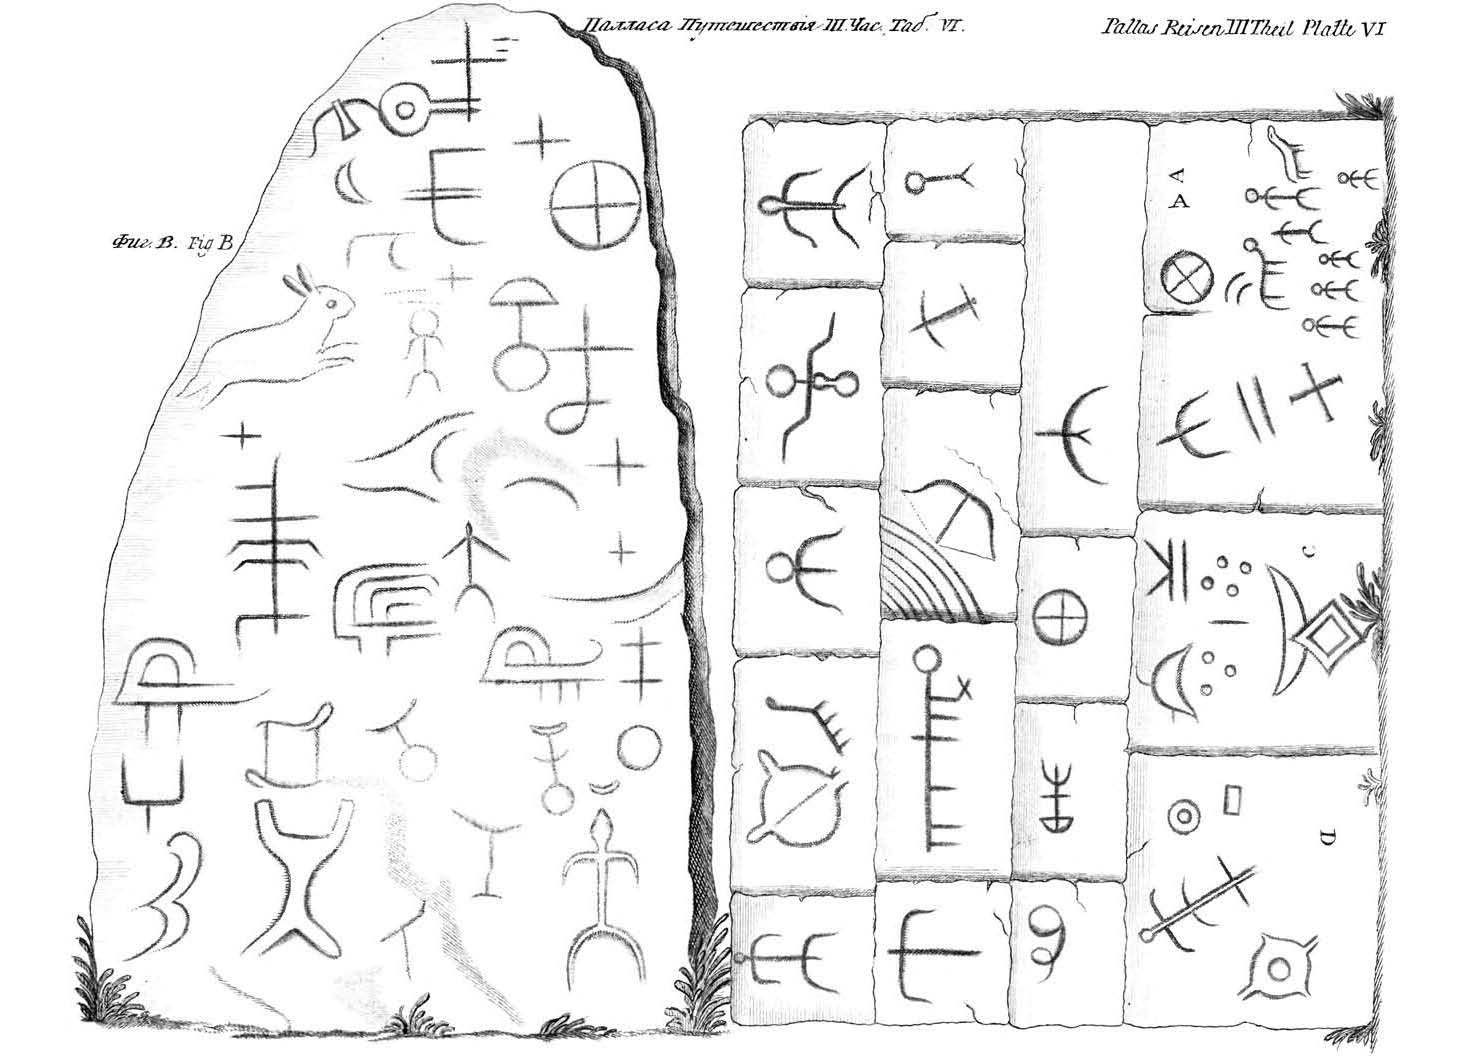 Палласа Путешествія III. Час. Таб. VI.
Pallas Reisen III Theil Platte VI
Фиг. B. Fig B
A
A
C
D